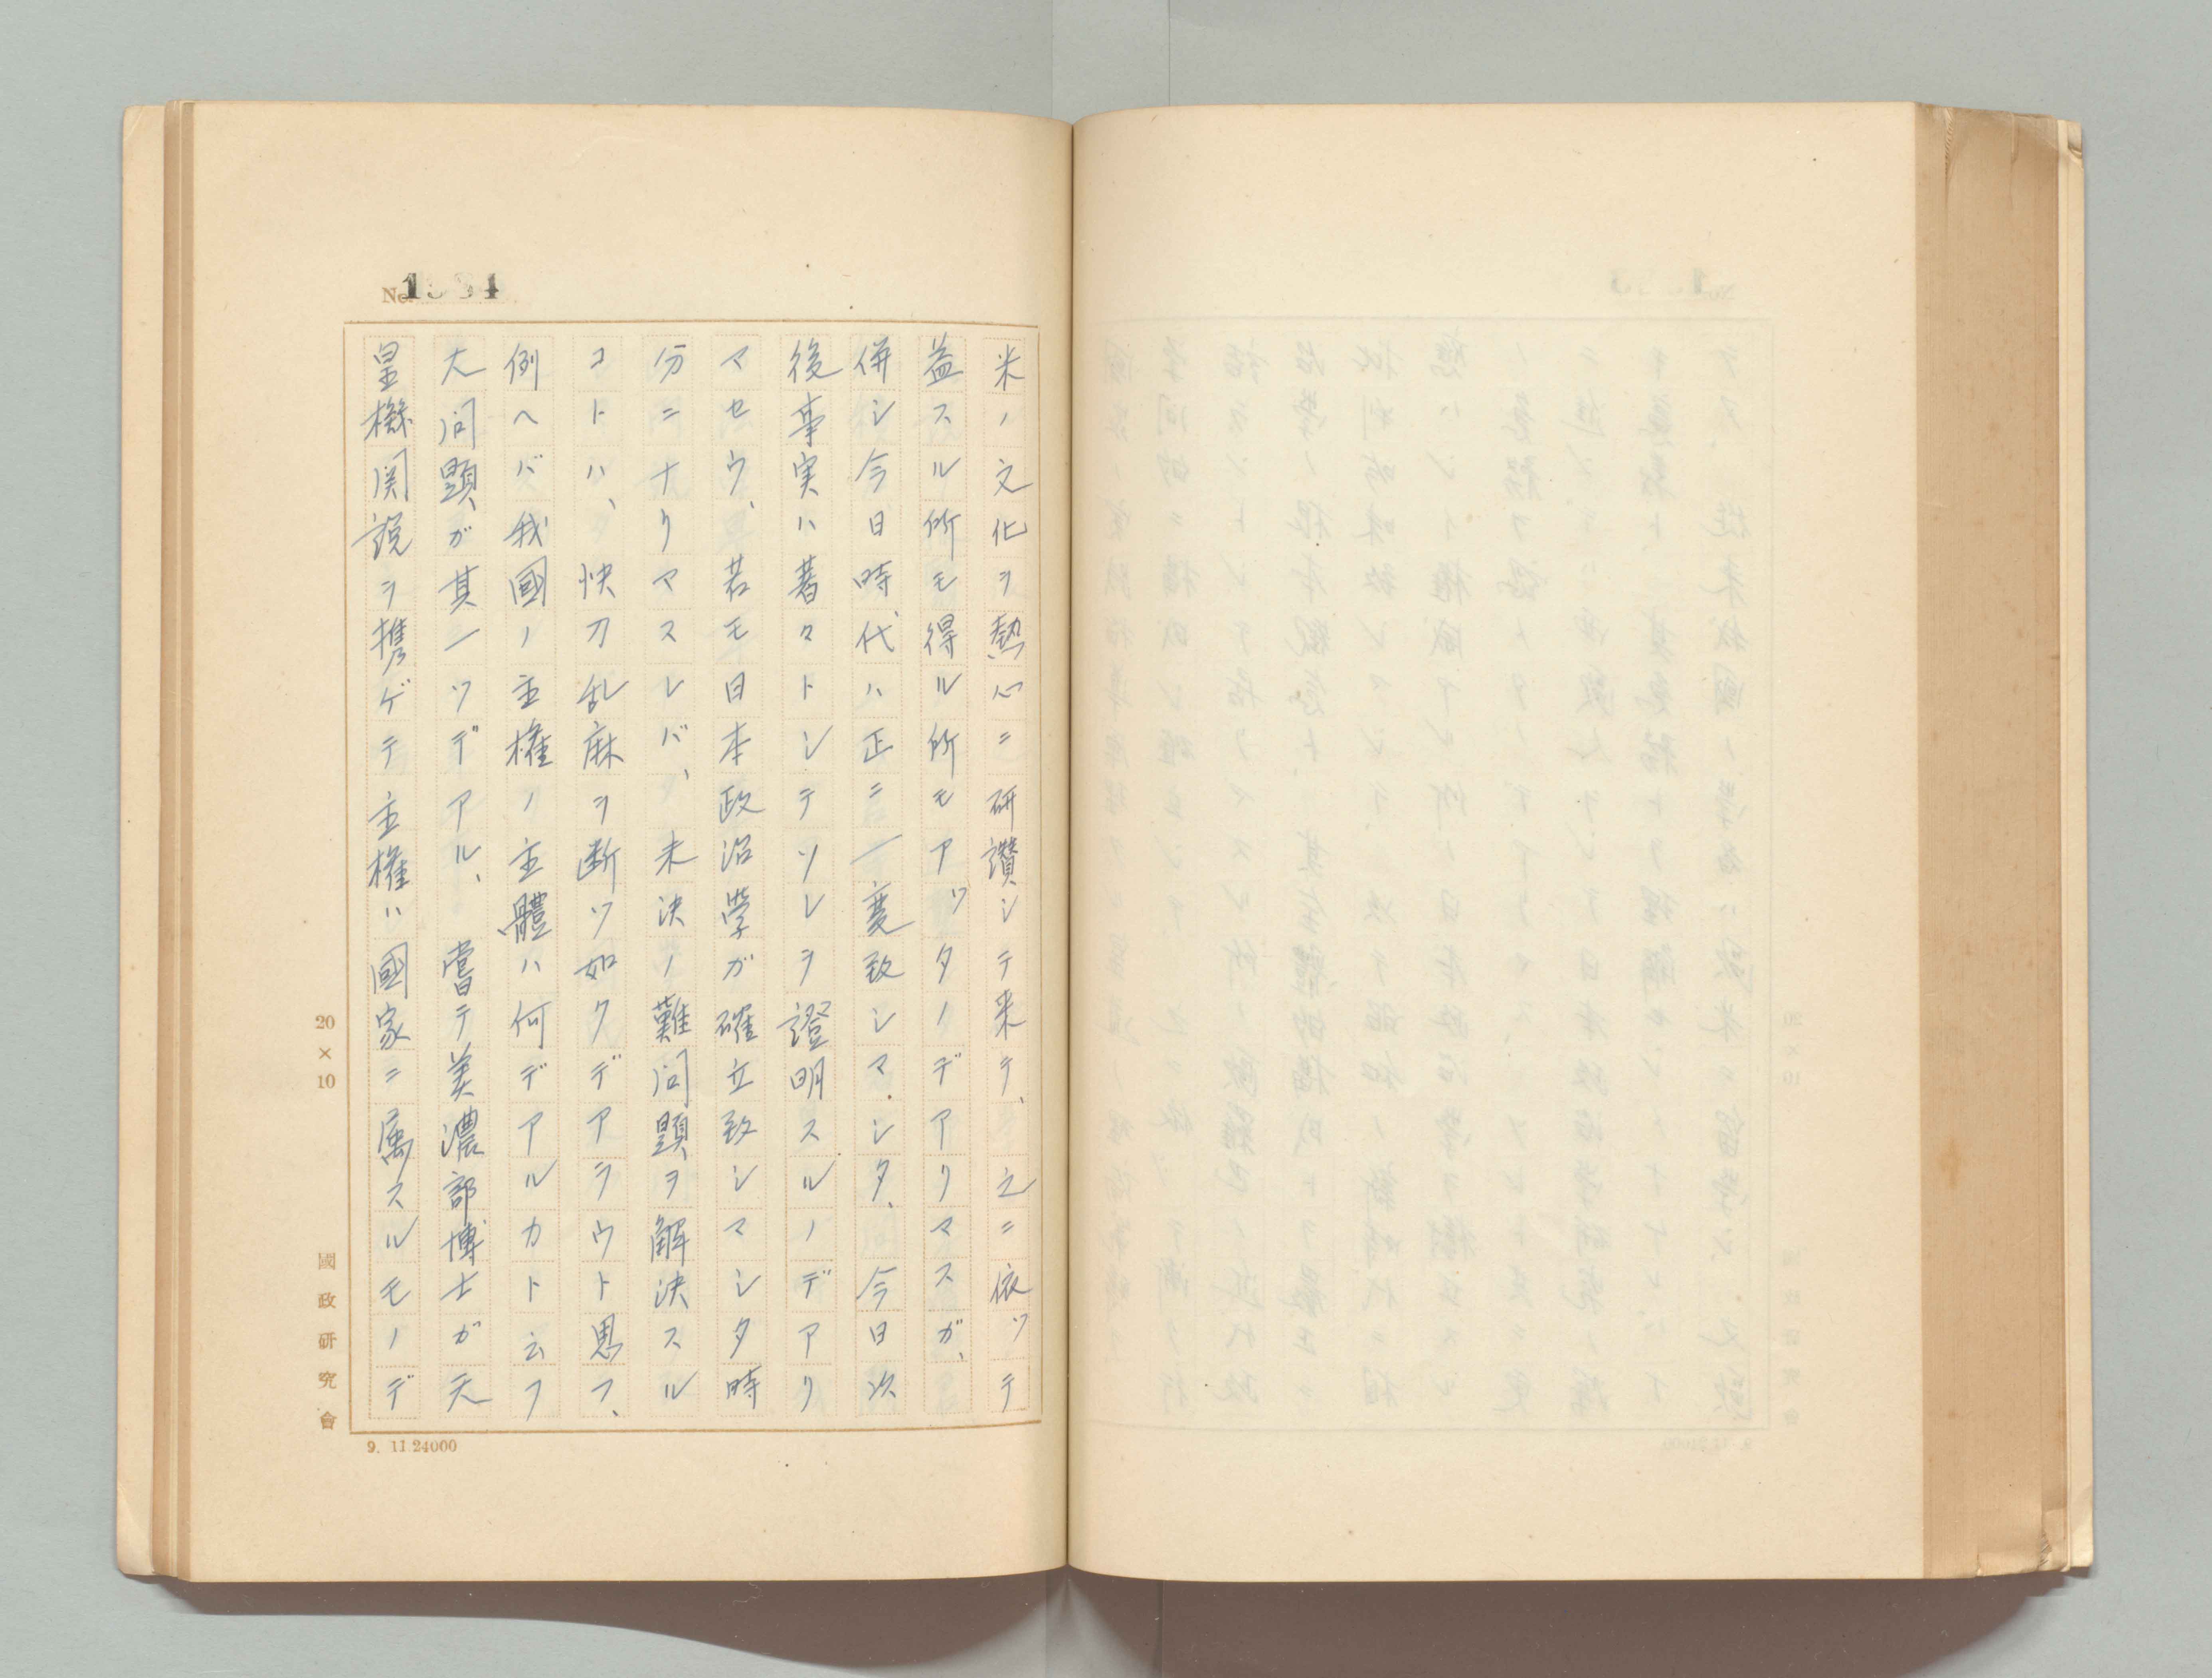 No. 1984
米ノ文化ヲ熱心ニ研讃シテ来テ、之ニ依ツテ
益スル所モ得ル所モアツタノデアリマスガ、
併シ今日時代ハ正ニ一変致シマシタ、今日次
後事実ハ著々トシテソレヲ證明スルノデアリ
マセウ、若モ日本政治學ガ確立致シマシタ時
分ニナリマスレバ、未決ノ難问題ヲ解決スル
コトハ、快刀乱麻ヲ断ツ如クデアラウト思フ、
例ヘバ我國ノ主權ノ主體ハ何デアルカト云フ
大问題ガ其一ツデアル、嘗テ美濃部博士ガ天
皇機関説ヲ携ゲテ主權ハ國家ニ属スルモノデ
20×10
國政研究會
9. 11.24000